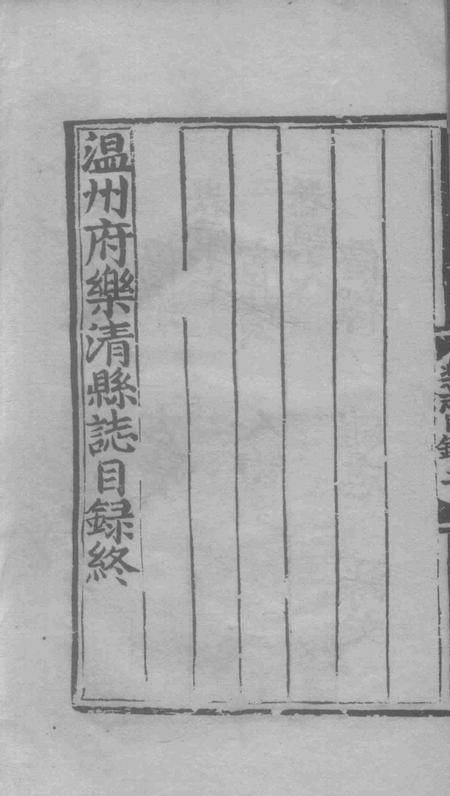 温州府樂清縣誌目録終